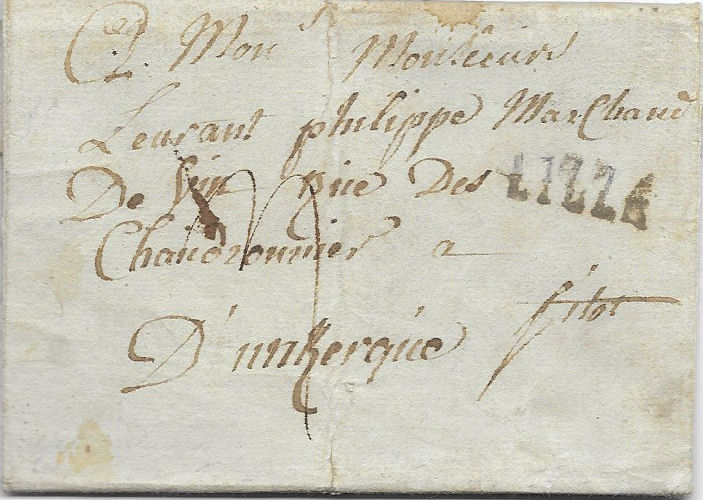 A Mons Monsieurs
Leurant philippe Marchand
De Vin rue Des
Chaudronnier a
D'unkerque